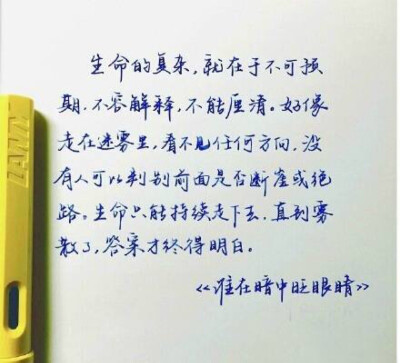 生命的复杂,就在于不可预
期.不容解释,不能厘清。好像
走在迷雾里,看不见任何方向.没
有人可以判别前面是否断崖或绝
路。生命只能持续走下去.直到雾
散了,答案才终得明白。
《谁在暗中眨眼睛》
LAMY